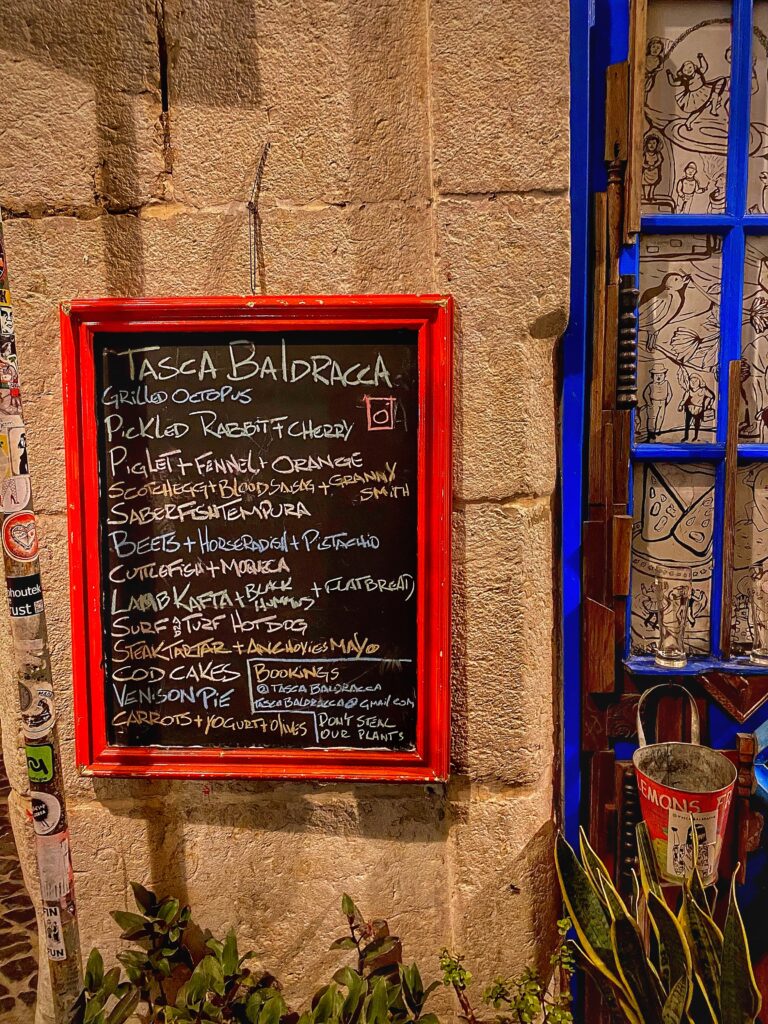 TASCA BALDRACCA
GRILLED OCTOPUS
PICKLED RABBIT + CHERRY
PIGLET + FENNEL + ORANGE
SCOTCHEGG + BLOOD SAUSAG + GRANNY
SMITH
SABERFISH TEMPURA
BEETS + HORSERADISH + PISTACHIO
CUTTLEFISH + MORNCA
LAMB KAFTA + BLACK HUMMUS + FLATBREAD
SURF AND TURF HOTDOG
STEAK TARTAR + ANCHOVIES MAYO
COD CAKES
VENISON PIE
CARROTS + YOGURT + OLIVES
BOOKINGS
@TASCA BALDRACCA
TASCABALDRACCA@GMAIL.COM
DON'T STEAL
OUR PLANTS
LEMONS
houtek
FIN
FUN